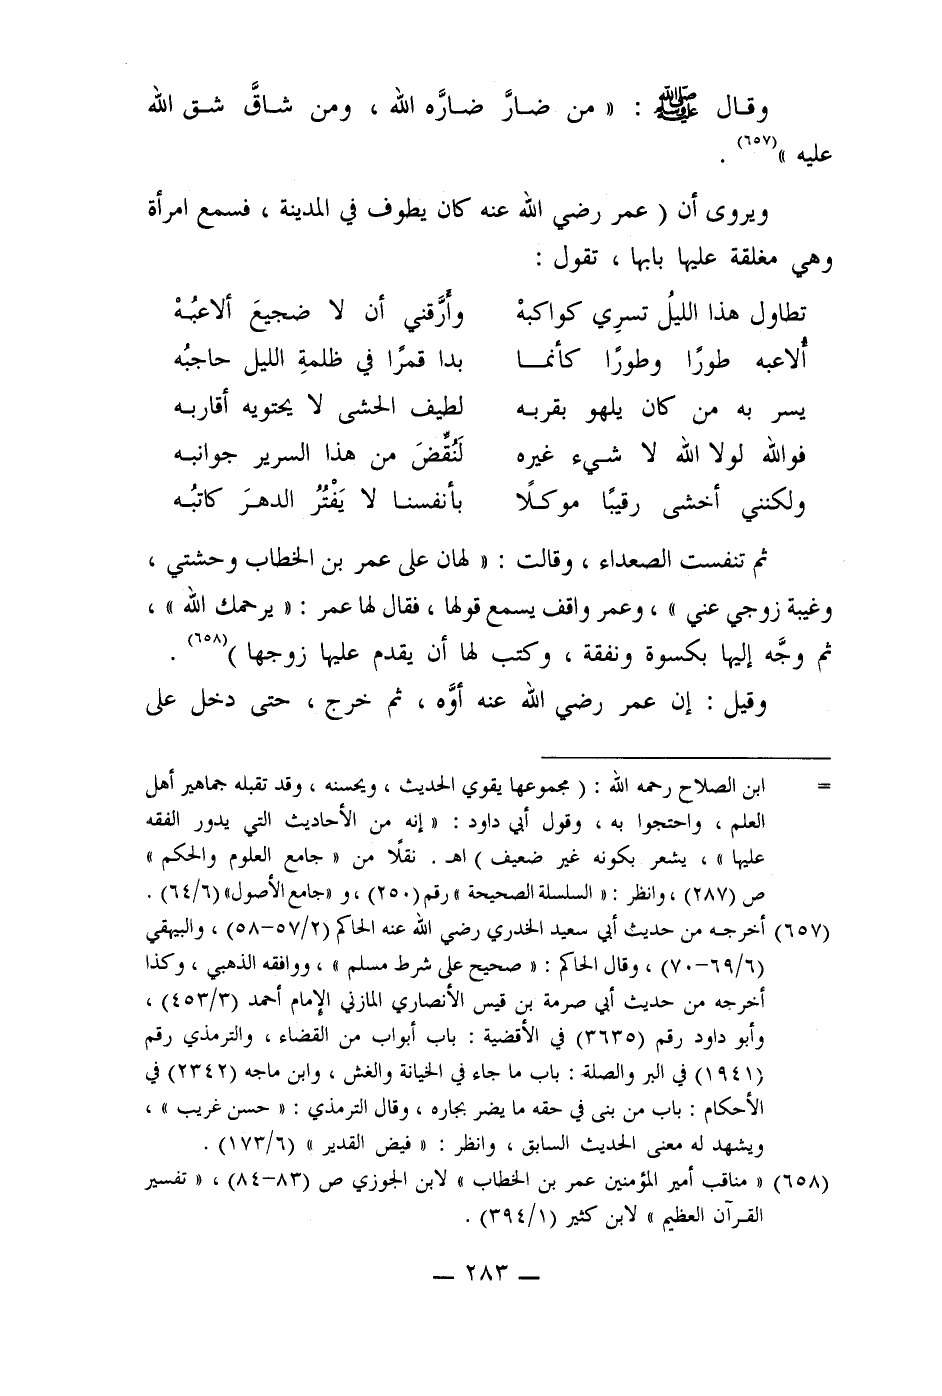 وقال ﷺ : « من ضارَّ ضارَّه الله ، ومن شاقَّ شق الله
عليه »(٦٥٧) .
ويروى أن ( عمر رضي الله عنه كان يطوف في المدينة ، فسمع امرأة
وهي مغلقة عليها بابها ، تقول :
تطاول هذا الليلُ تسرِي كواكبهْ وأَرَّقني أن لا ضجيعَ ألاعبُهْ
أُلاعبه طورًا وطورًا كأنما بدا قمرًا في ظلمةِ الليل حاجبُه
يسر به من كان يلهو بقربه لطيف الحشى لا يحتويه أقاربه
فوالله لولا الله لا شيء غيره لَنُقِّضَ من هذا السرير جوانبه
ولكنني أخشى رقيبًا موكلًا بأنفسنا لا يَفْتُرُ الدهرَ كاتبُه
ثم تنفست الصعداء ، وقالت : « لهان على عمر بن الخطاب وحشتي ،
وغيبة زوجي عني » ، وعمر واقف يسمع قولها ، فقال لها عمر : « يرحمك الله » ،
ثم وجَّه إليها بكسوة ونفقة ، وكتب لها أن يقدم عليها زوجها )(٦٥٨) .
وقيل : إن عمر رضي الله عنه أوَّه ، ثم خرج ، حتى دخل على
= ابن الصلاح رحمه الله : ( مجموعها يقوي الحديث ، ويحسنه ، وقد تقبله جماهير أهل
العلم ، واحتجوا به ، وقول أبي داود : « إنه من الأحاديث التي يدور الفقه
عليها » ، يشعر بكونه غير ضعيف ) اهـ . نقلًا من « جامع العلوم والحكم »
ص (٢٨٧) ، وانظر : « السلسلة الصحيحة » رقم (٢٥٠) ، و «جامع الأصول» (٦٤/٦) .
(٦٥٧) أخرجه من حديث أبي سعيد الخدري رضي الله عنه الحاكم (٥٧/٢–٥٨) ، والبيهقي
(٦٩/٦–٧٠) ، وقال الحاكم : « صحيح على شرط مسلم » ، ووافقه الذهبي ، وكذا
أخرجه من حديث أبي صرمة بن قيس الأنصاري المازني الإمام أحمد (٤٥٣/٣) ،
وأبو داود رقم (٣٦٣٥) في الأقضية : باب أبواب من القضاء ، والترمذي رقم
(١٩٤١) في البر والصلة : باب ما جاء في الخيانة والغش ، وابن ماجه (٢٣٤٢) في
الأحكام : باب من بنى في حقه ما يضر بجاره ، وقال الترمذي : « حسن غريب » ،
ويشهد له معنى الحديث السابق ، وانظر : « فيض القدير » (١٧٣/٦) .
(٦٥٨) « مناقب أمير المؤمنين عمر بن الخطاب » لابن الجوزي ص (٨٣–٨٤) ، « تفسير
القرآن العظيم » لابن كثير (٣٩٤/١) .
— ٢٨٣ —